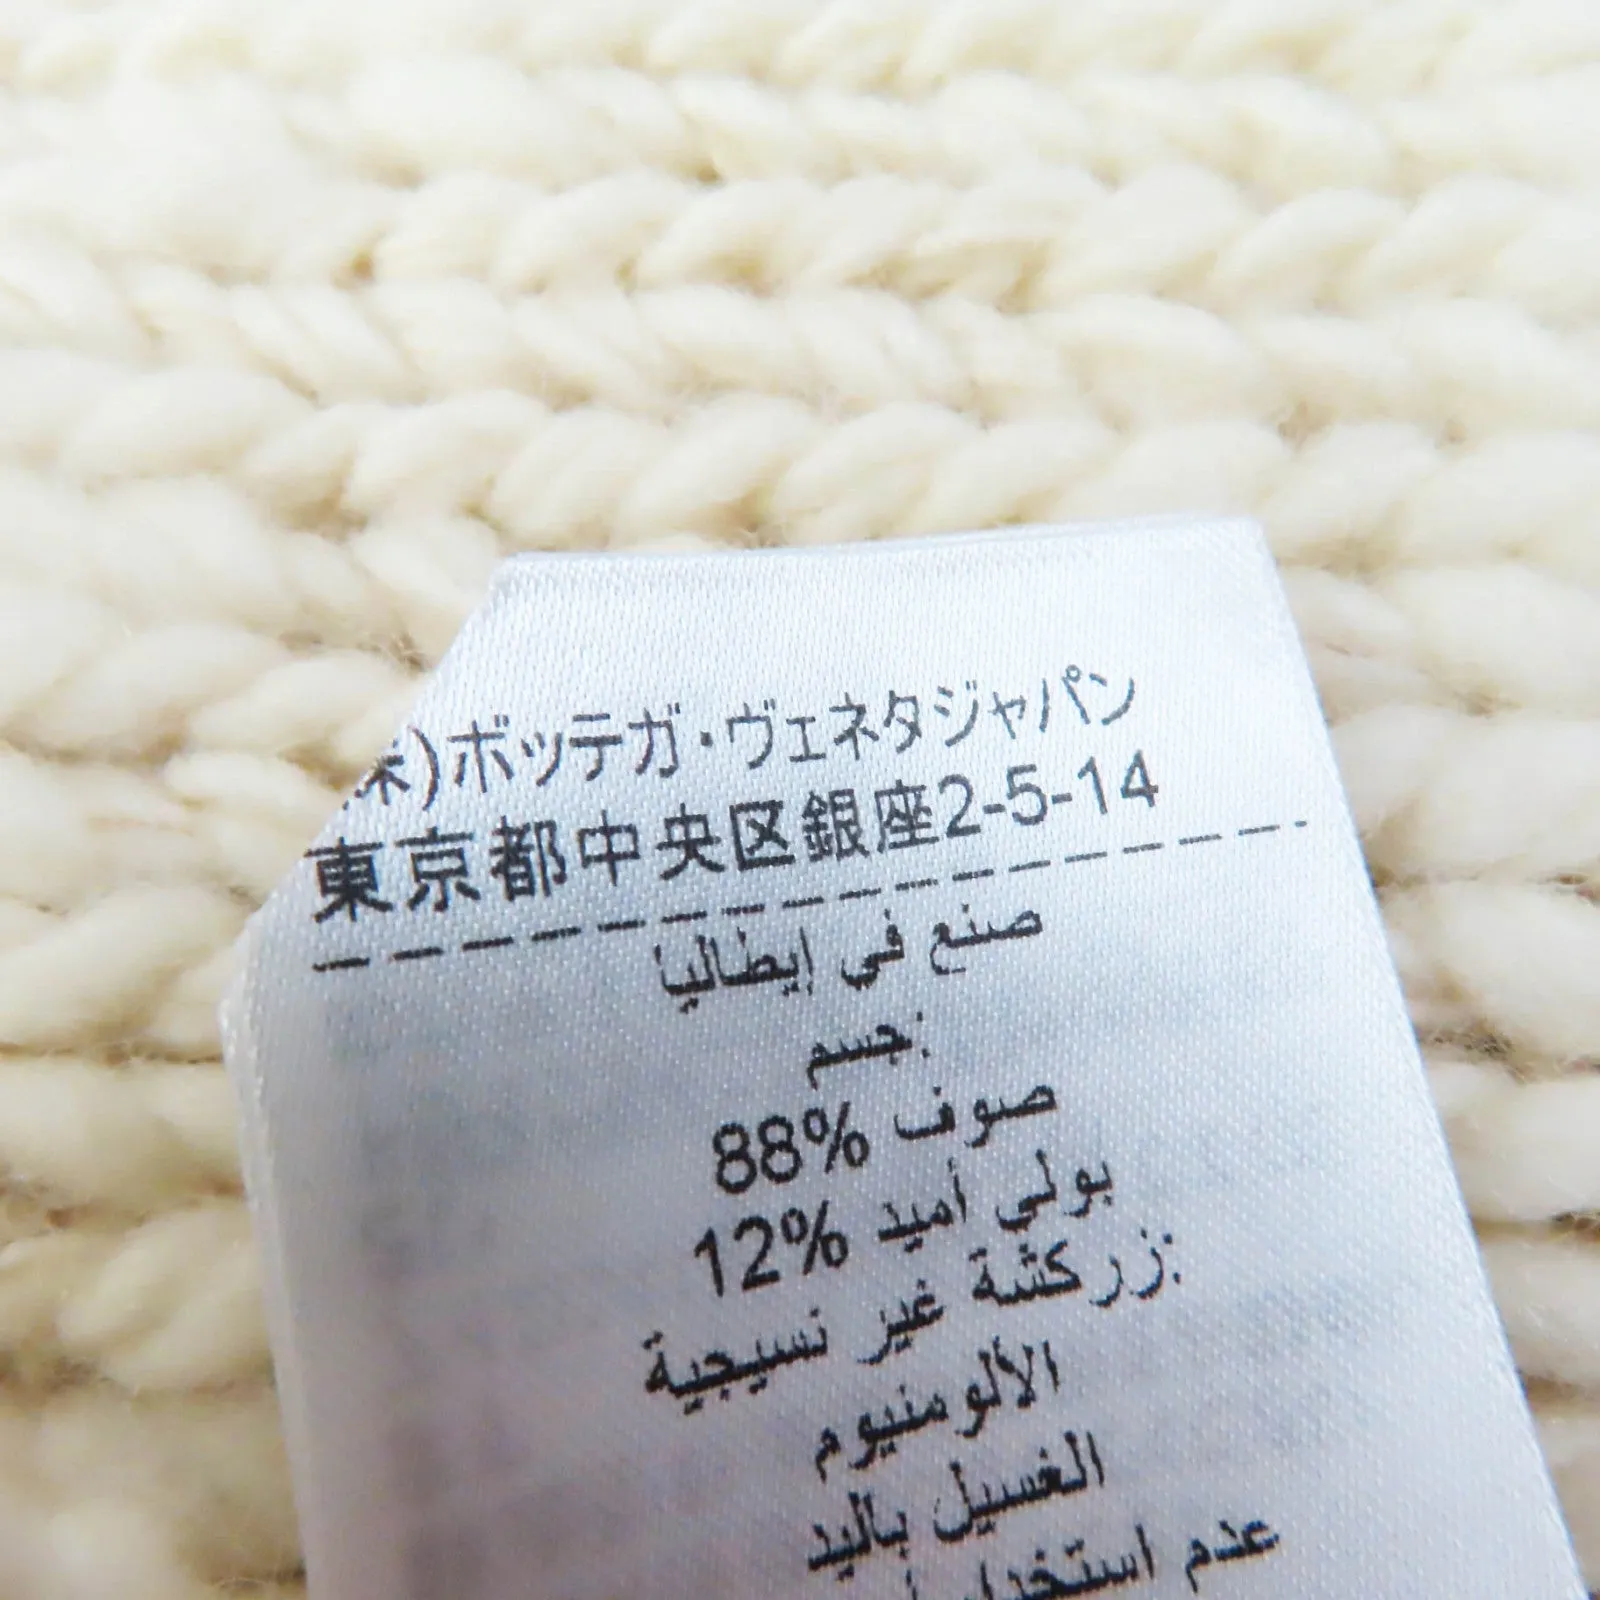 株)ボッテガ・ヴェネタジャパン
東京都中央区銀座2-5-14
صنع في إيطاليا
جسم:
صوف 88%
بولي أميد 12%
زركشة غير نسيجية:
الألومنيوم
الغسيل باليد
عدم استخدام